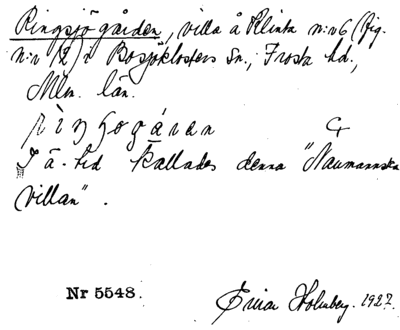 Ringsjögården, villa å Klinta n:r 6 (fig.
n:r 12) i Bosjöklosters sn., Frosta hd.,
Mlm. län.
I ä. tid kallades denna "Naumannska
villan".
Nr 5548.
Einar Holmberg. 1927.